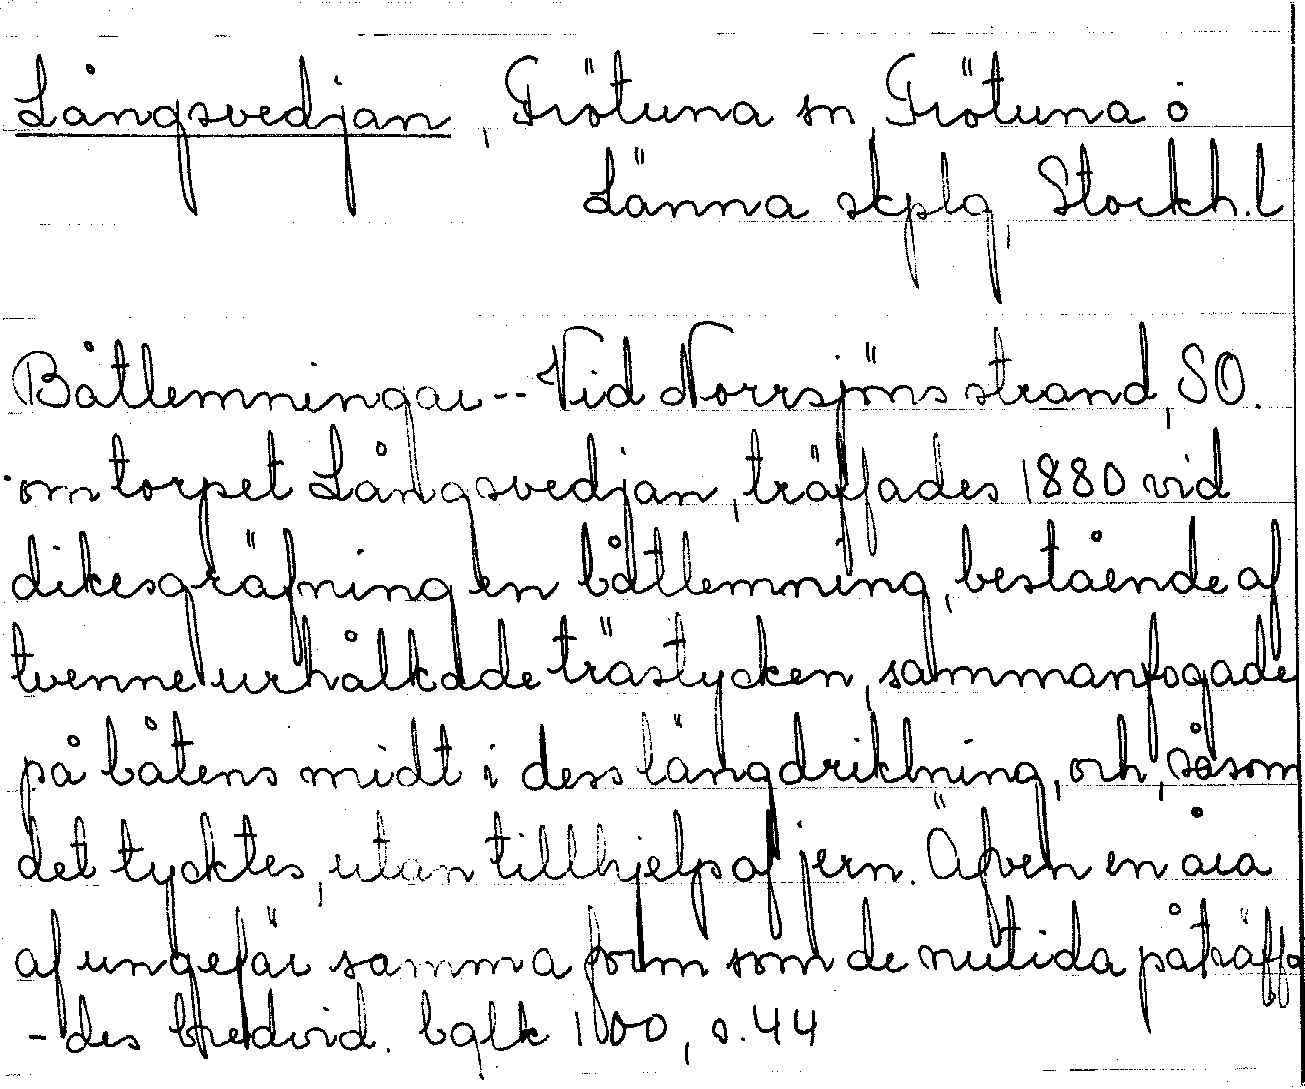 Långsvedjan, Frötuna sn, Frötuna o
Länna skplg, Stockh.l
Båtlemningar -- Vid Norrsjöns strand, SO.
om torpet Långsvedjan, träffades 1880 vid
dikesgräfning en båtlemning, bestående af
tvenne urhålkade trästycken, sammanfogade
på båtens midt i dess längdriktning, och, såsom
det tycktes, utan tillhjelp af jern. Äfven en åra
af ungefär samma form som de nutida påträffa
- des bredvid. bglk 100, s. 44